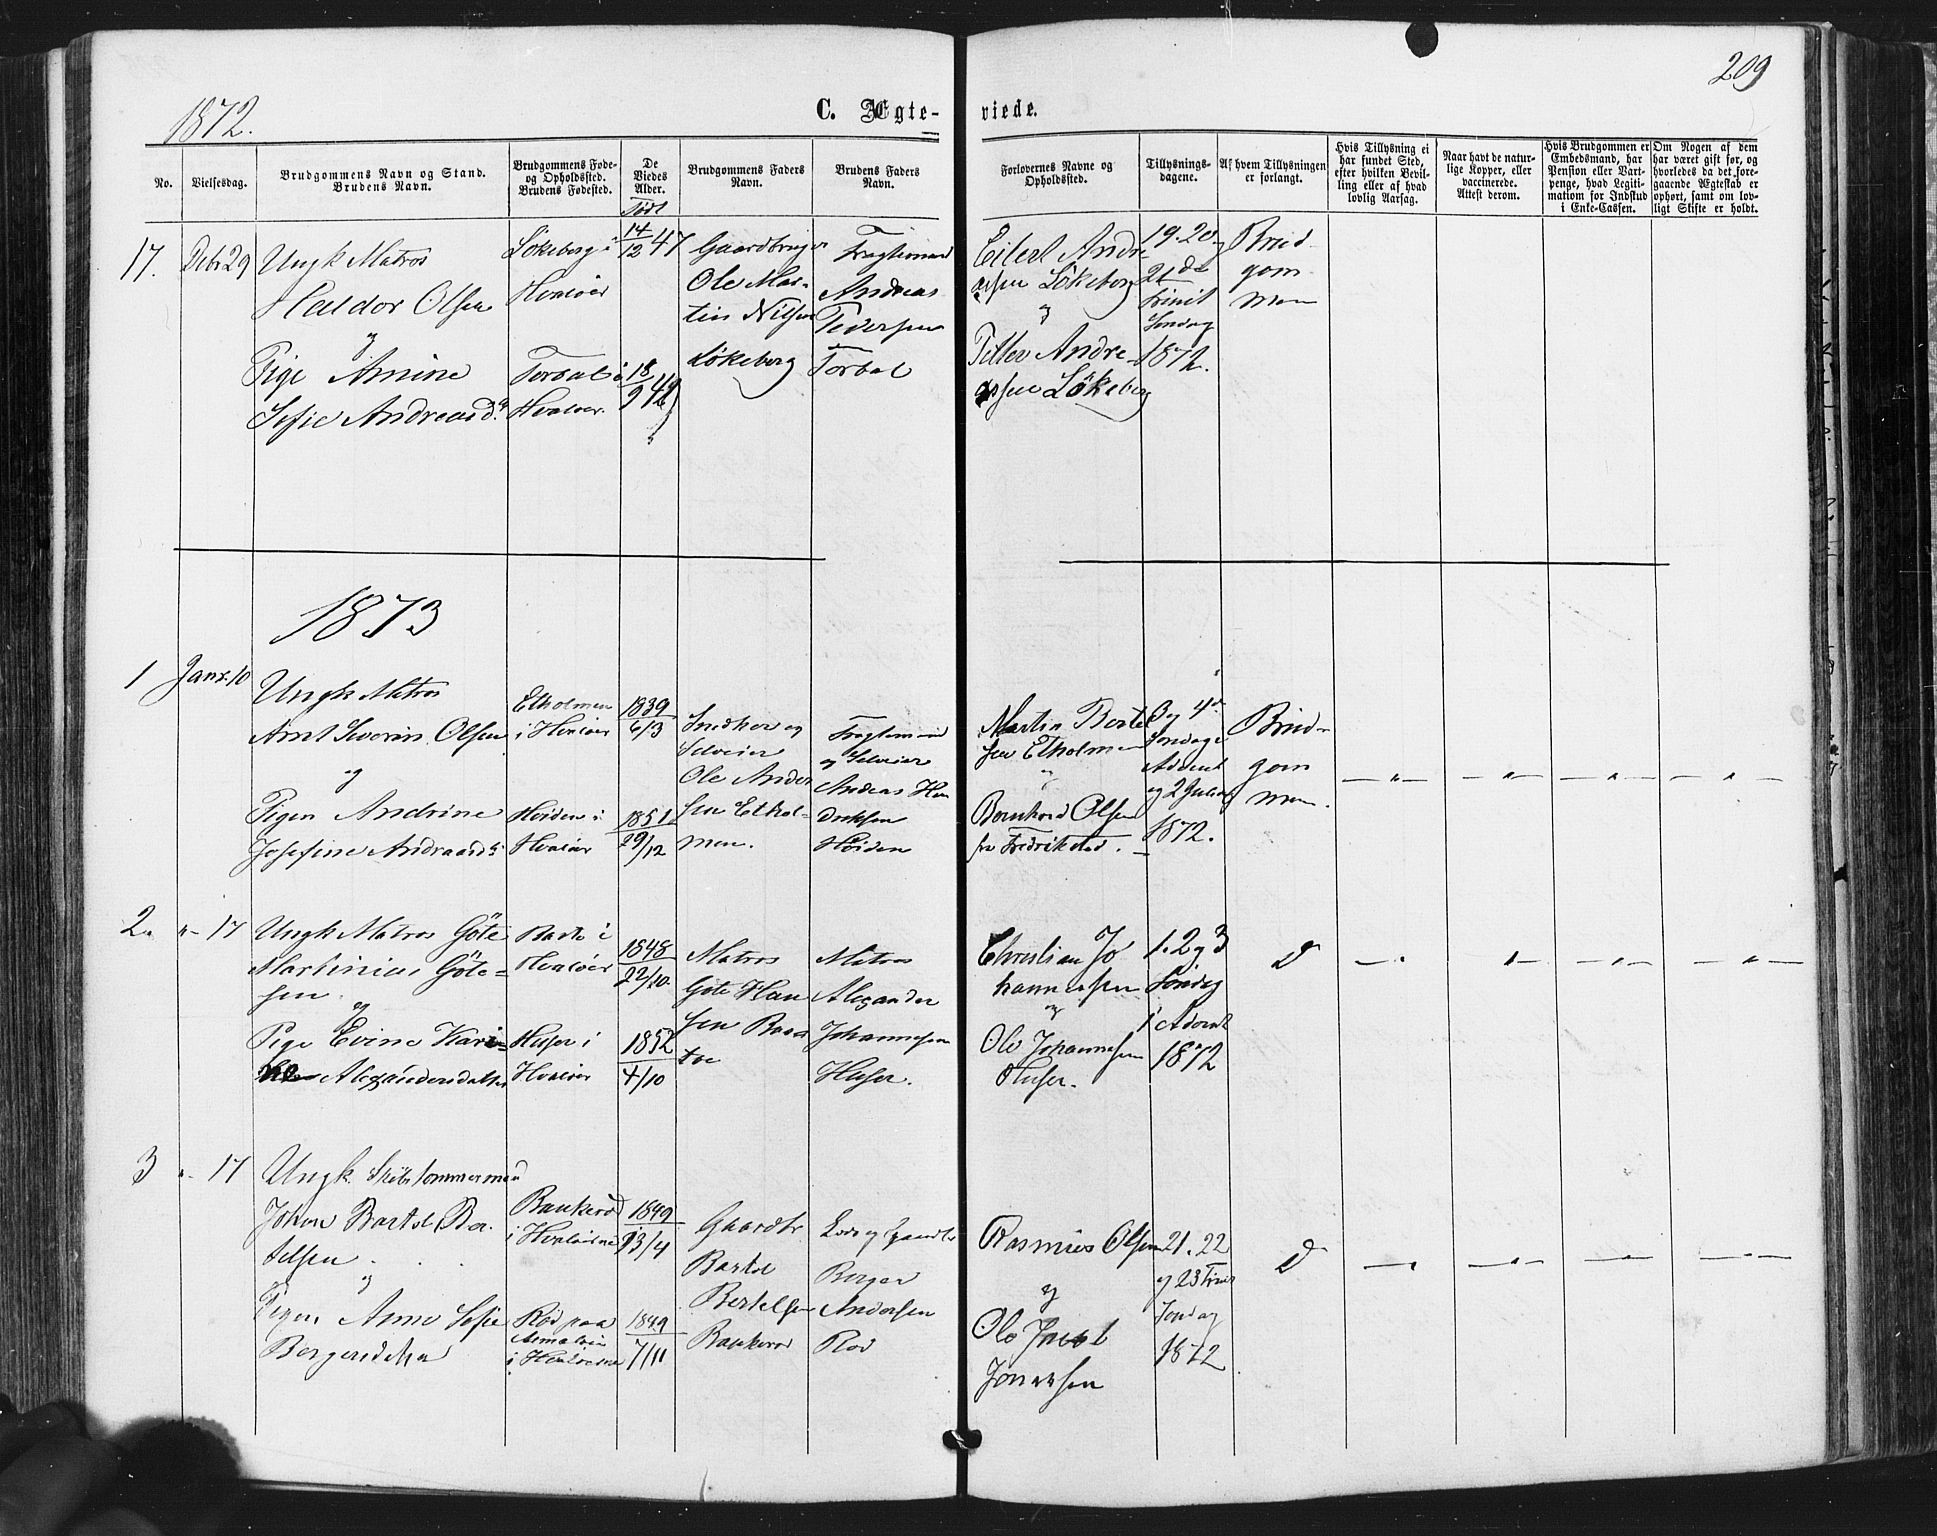 209
1872.
C. Ægte-
viede.
No.
Vielsesdag.
Brudgommens Navn og Stand.
Brudens Navn.
Brudgommens Føde-
og Opholdssted.
Brudens Fødested.
De
Viedes
Alder.
Født
Brudgommens Faders
Navn.
Brudens Faders
Navn.
Forlovernes Navne og
Opholdssted.
Tillysnings-
dagene.
Af hvem Tillysningen
er forlangt.
Hvis Tillysning ei
har fundet Sted,
efter hvilken Bevil-
ling eller af hvad
lovlig Aarsag.
Naar havt de natur-
lige Kopper, eller
vaccinerede.
Attest derom.
Hvis Brudgommen er
Embedsmand, har
Pension eller Vart-
penge, hvad Legiti-
mation for Indskud
i Enke-Cassen.
Om Nogen af dem
har været gift før, og
hvorledes da det fore-
gaaende Ægteskab er
ophørt, samt om lov-
ligt Skifte er holdt.
17.
Decbr 29
Ungk Matros
Haldor Olsen
og
Pige Amine
Sofie Andreasd.
Lökeberg i
Hvaløer
Torbal i
Hvaløer.
14/12 47
18/9 49
Gaardbruger
Ole Mar-
tin Nilsen
Lökeberg
Fragtemand
Andreas
Pedersen
Torbal
Eilert Andre
asen Lökeberg
og
Petter Andre-
assen Lökeberg
19. 20 og
21de
Trinit
Søndag
1872.
Brud
gom
men
1873
1
Janr. 10
Ungk Matros
Arnt Severin Olsen
og
Pigen Andrine
Josefine Andreasd.
Etholmen
i Hvaløer
Höiden i
Hvaløer
1839
6/3
1851
29/12
Snedker og
Selveier
Ole Ander
sen Ethol-
men.
Fragtemand
og Selveier
Andreas Hen
driksen
Höiden
Martin Bertel
sen Etholmen
"
Bernhard Olsen
fra Fredrikstad.
3 og 4de
Søndag i
Advent
og 2 Juledag
1872.
Brud-
gom
men.
— " —
— " —
— " —
— " —
2.
"– 17
Ungk Matros Göte
Martinius Göte-
sen.
og
Pige Evine Kari-
Alexandersdatter
i
Hvaløer
Huser i
Hvaløer
1848
22/10.
1852
4/10
Matros
Göte Han
sen
Matros
Alexander
Johannesen
Huser.
Christian Jo
hannessen
og
Ole Johannesen
Huser.
1. 2 og 3
Søndag
i Advent
1872
D
— " —
— " —
— " —
— " —
3
"– 17
Ungk. Skibstømmermand
Johan Bartel Ber
telsen
og
Pigen Anne Sofie
Bergersdatter
Bankerød
i Hvaløerne
Rød paa
Asmaløen
i Hvaløerne
1849
13/4
1849
7/11
Gaardbr
Bartel
Bertelsen
Bankerød
Lods og Gaardbr
Berger
Andersen
Rød
Rasmus Olsen
og
Ole Jacob
Jonassen
21. 22
og 23 Trinit
Søndag
1872
D
— " —
— " —
— " —
— " —